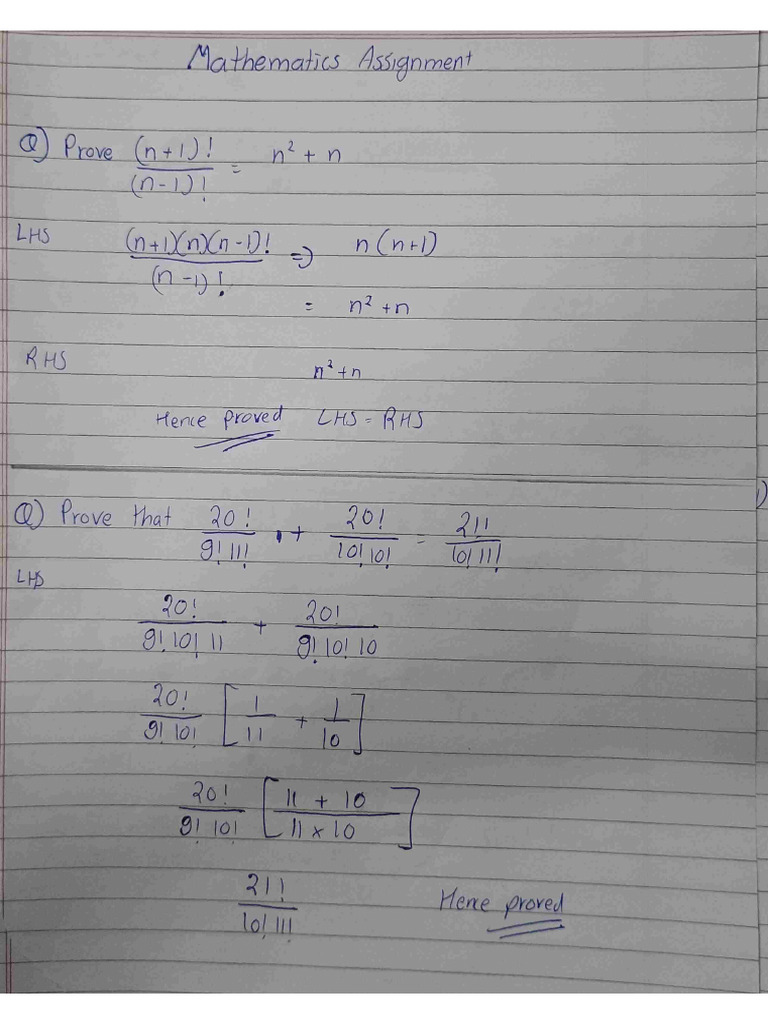 Mathematics Assignment
Q) Prove (n+1)! / (n-1)! = n² + n
LHS (n+1)(n)(n-1)! / (n-1)! => n(n+1)
= n² + n
RHS n²+n
Hence proved LHS = RHS
Q) Prove that 20! / 9! 11! + 20! / 10! 10! = 21! / 10! 11!
LHS
20! / 9! 10! 11 + 20! / 9! 10! 10
20! / 9! 10! [ 1/11 + 1/10 ]
20! / 9! 10! [ 11 + 10 / 11 × 10 ]
21! / 10! 11! Hence proved
1)